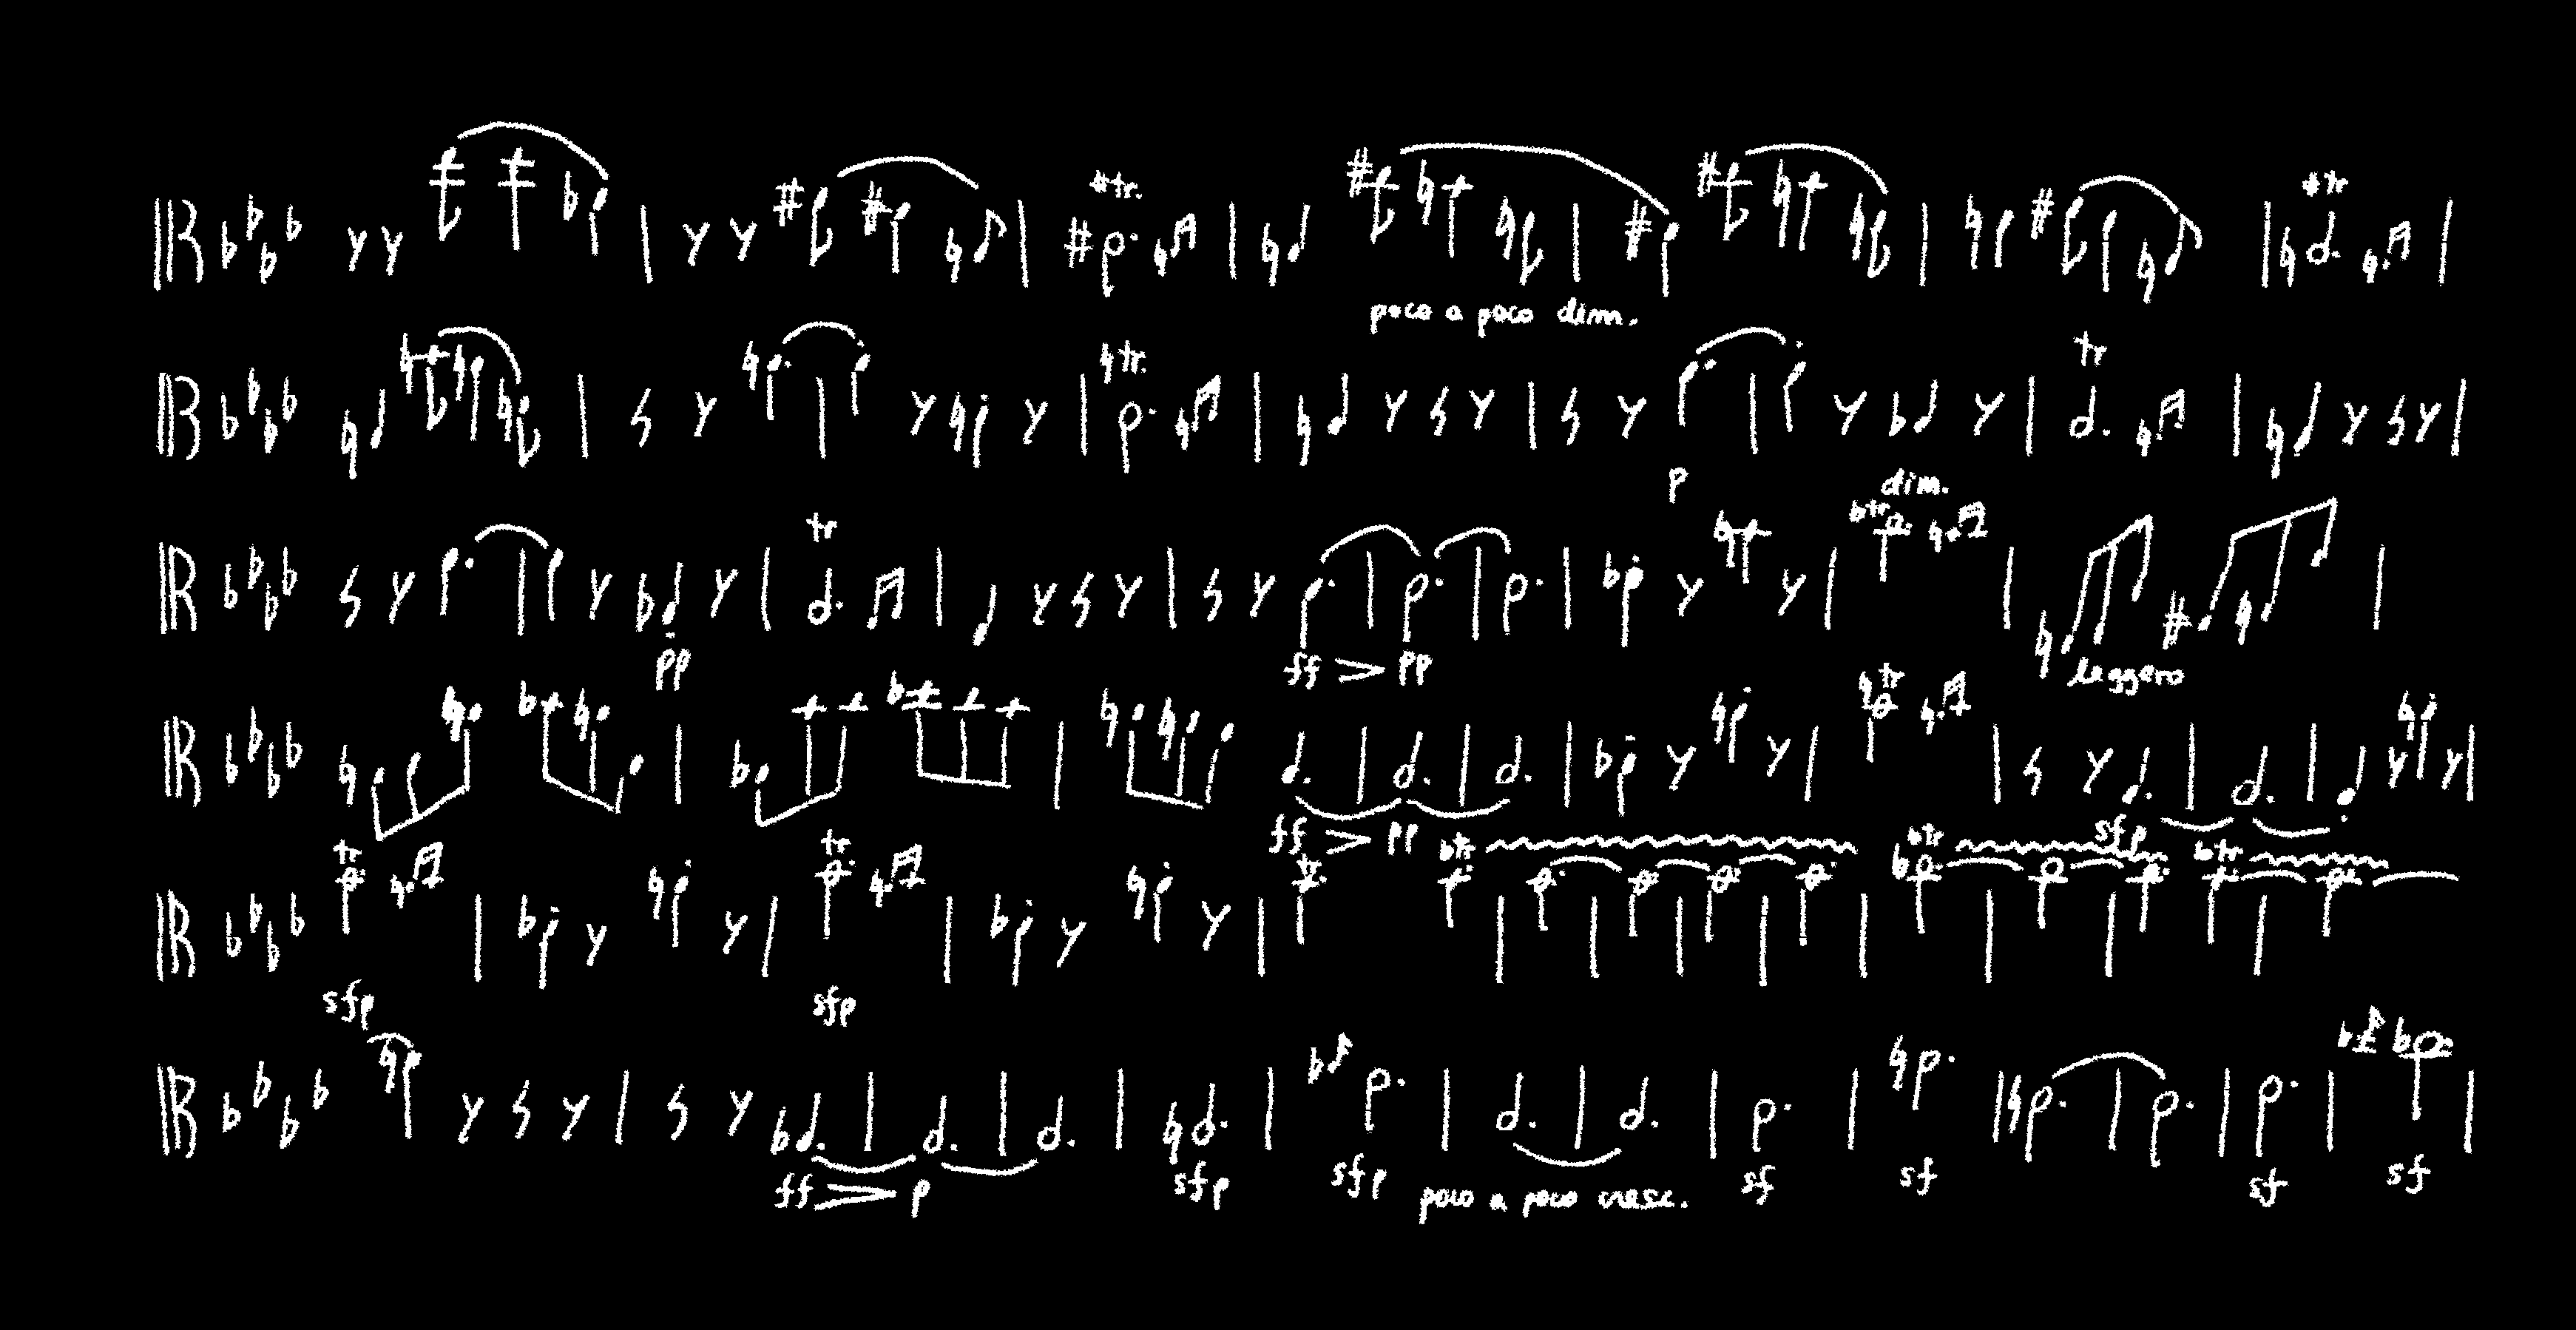 #tr. #tr
poco a poco dim.
tr. tr
p dim.
tr btr
pp ff pp leggero
tr
ff pp sfp
tr tr tr btr btr btr
sfp sfp
ff p sfp sfp poco a poco cresc. sf sf sf sf